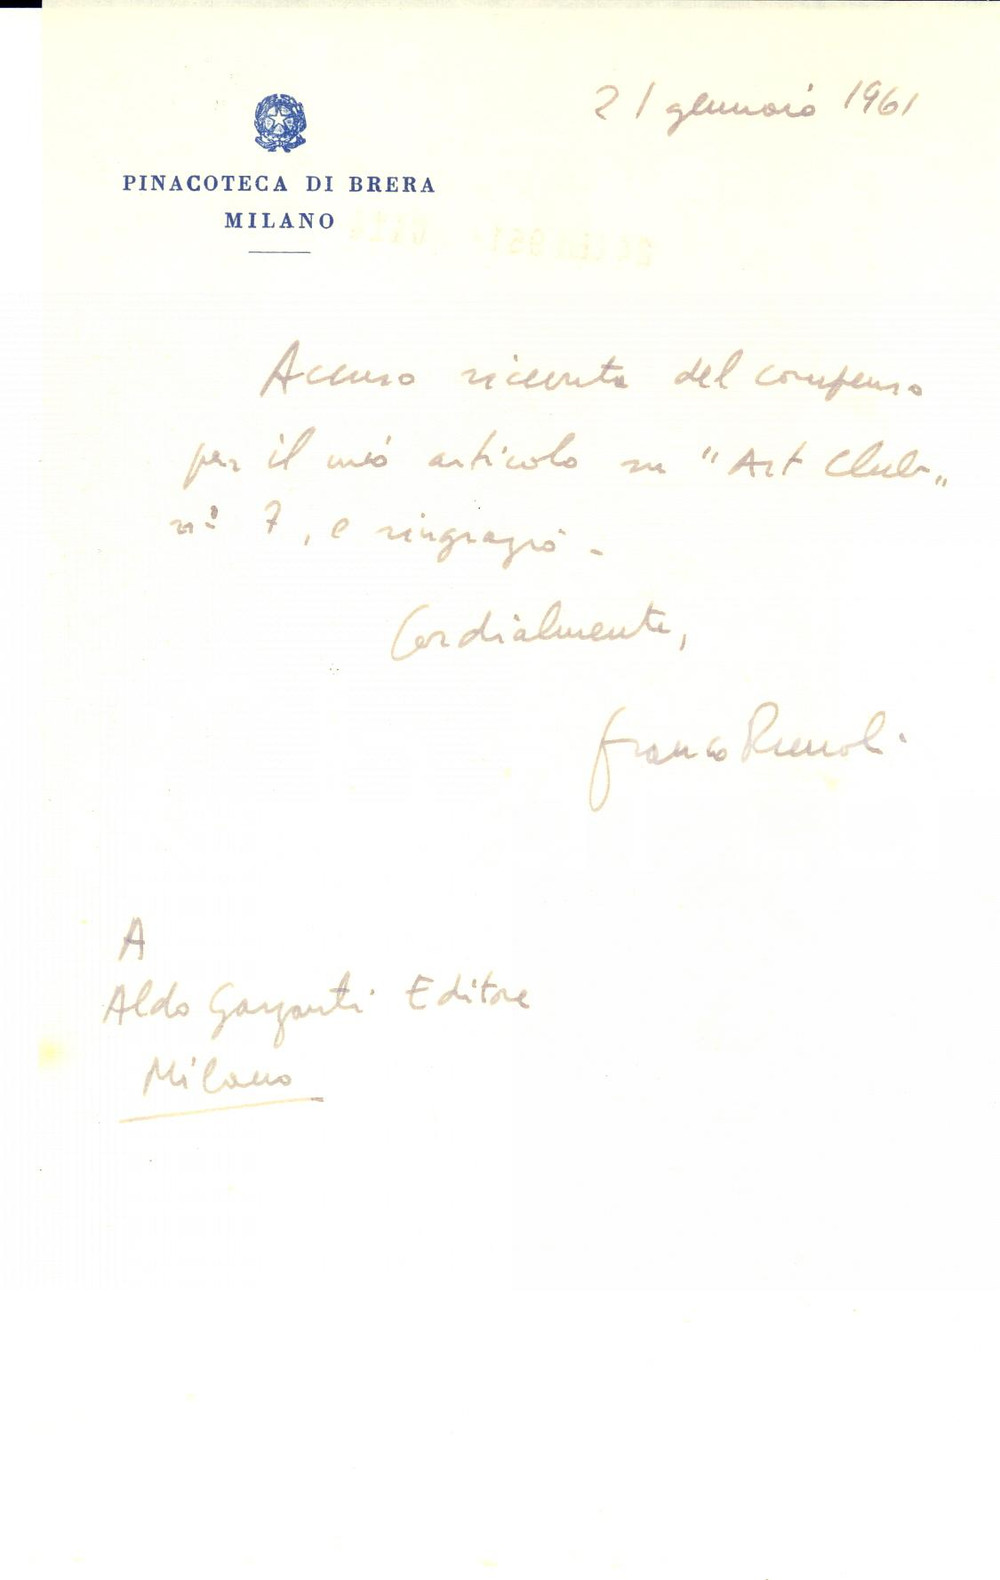 21 gennaio 1961
PINACOTECA DI BRERA
MILANO
Accuso ricevuta del compenso
per il mio articolo su "Art Club"
n° 7, e ringrazio -
Cordialmente,
Franco Russoli
A
Aldo Garzanti Editore
Milano